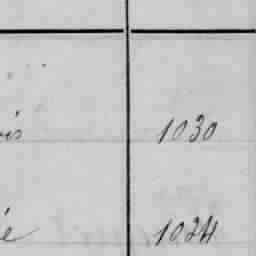 is 1030
é 1024